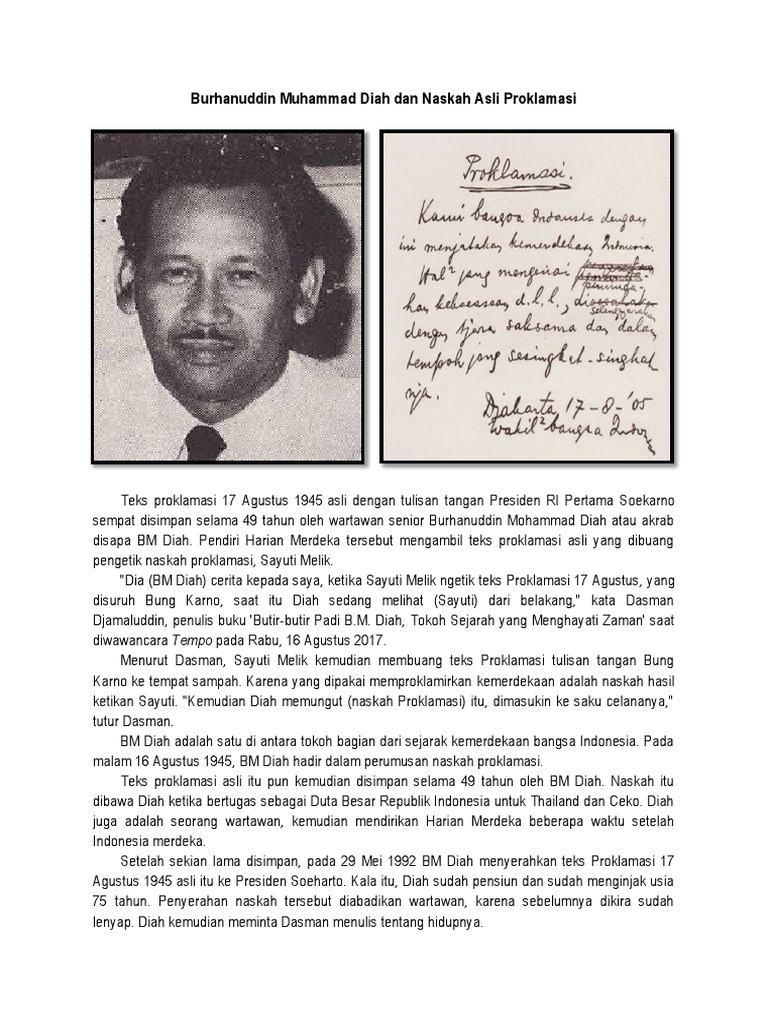 Burhanuddin Muhammad Diah dan Naskah Asli Proklamasi
Proklamasi.
Kami bangsa Indonesia dengan
ini menjatakan kemerdekaan Indonesia.
Hal² jang mengenai
peminda-
han kekoeasaan d.l.l.,
diselenggarakan
dengan tjara saksama dan dalam
tempoh jang sesingkat-singkat
nja.
Djakarta, 17-8-'05
Wakil² bangsa Indonesia
Teks proklamasi 17 Agustus 1945 asli dengan tulisan tangan Presiden RI Pertama Soekarno
sempat disimpan selama 49 tahun oleh wartawan senior Burhanuddin Mohammad Diah atau akrab
disapa BM Diah. Pendiri Harian Merdeka tersebut mengambil teks proklamasi asli yang dibuang
pengetik naskah proklamasi, Sayuti Melik.
"Dia (BM Diah) cerita kepada saya, ketika Sayuti Melik ngetik teks Proklamasi 17 Agustus, yang
disuruh Bung Karno, saat itu Diah sedang melihat (Sayuti) dari belakang," kata Dasman
Djamaluddin, penulis buku 'Butir-butir Padi B.M. Diah, Tokoh Sejarah yang Menghayati Zaman' saat
diwawancara Tempo pada Rabu, 16 Agustus 2017.
Menurut Dasman, Sayuti Melik kemudian membuang teks Proklamasi tulisan tangan Bung
Karno ke tempat sampah. Karena yang dipakai memproklamirkan kemerdekaan adalah naskah hasil
ketikan Sayuti. "Kemudian Diah memungut (naskah Proklamasi) itu, dimasukin ke saku celananya,"
tutur Dasman.
BM Diah adalah satu di antara tokoh bagian dari sejarak kemerdekaan bangsa Indonesia. Pada
malam 16 Agustus 1945, BM Diah hadir dalam perumusan naskah proklamasi.
Teks proklamasi asli itu pun kemudian disimpan selama 49 tahun oleh BM Diah. Naskah itu
dibawa Diah ketika bertugas sebagai Duta Besar Republik Indonesia untuk Thailand dan Ceko. Diah
juga adalah seorang wartawan, kemudian mendirikan Harian Merdeka beberapa waktu setelah
Indonesia merdeka.
Setelah sekian lama disimpan, pada 29 Mei 1992 BM Diah menyerahkan teks Proklamasi 17
Agustus 1945 asli itu ke Presiden Soeharto. Kala itu, Diah sudah pensiun dan sudah menginjak usia
75 tahun. Penyerahan naskah tersebut diabadikan wartawan, karena sebelumnya dikira sudah
lenyap. Diah kemudian meminta Dasman menulis tentang hidupnya.